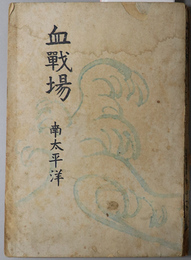 血戰場
南太平洋